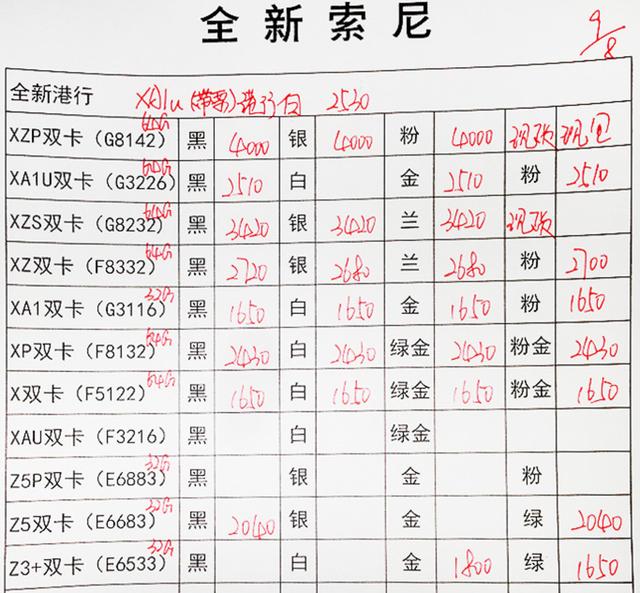 全新索尼
9/8
全新港行 XA1u(带票)港行白 2530
XZP双卡(G8142) 64G 黑 4000 银 4000 粉 4000 现货 现包
XA1U双卡(G3226) 64G 黑 2510 白 金 2510 粉 2510
XZS双卡(G8232) 64G 黑 3420 银 3420 兰 3420 现货
XZ双卡(F8332) 64G 黑 2720 银 2680 兰 2680 粉 2700
XA1双卡(G3116) 32G 黑 1650 白 1650 金 1650 粉 1650
XP双卡(F8132) 64G 黑 2430 白 2430 绿金 2430 粉金 2430
X双卡(F5122) 64G 黑 1650 白 1650 绿金 1650 粉金 1650
XAU双卡(F3216) 黑 白 绿金
Z5P双卡(E6883) 32G 黑 银 金 粉
Z5双卡(E6683) 32G 黑 2040 银 金 绿 2040
Z3+双卡(E6533) 32G 黑 白 金 1800 绿 1650